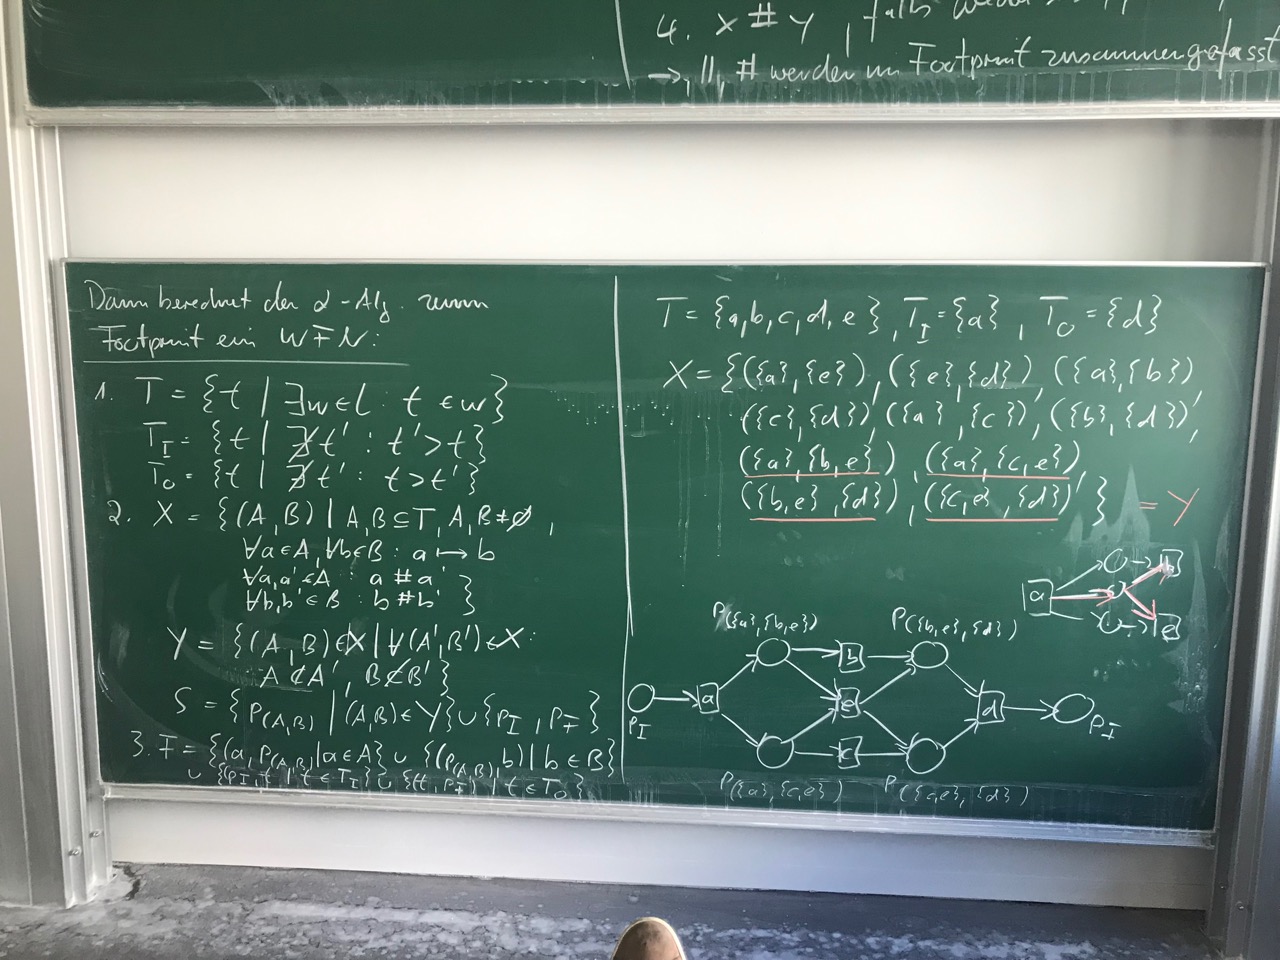 4. x # y, falls
→ ||, # werden im Footprint zusammengefasst
Dann berechnet der α-Alg. zum
Footprint ein WFN:
1. T = {t | ∃w∈L : t ∈ w}
T_I = {t | ∄t' : t' > t}
T_O = {t | ∄t' : t > t'}
2. X = {(A, B) | A, B ⊆ T, A, B ≠ ∅,
∀a∈A, ∀b∈B : a ↦ b
∀a,a'∈A : a # a'
∀b,b'∈B : b # b' }
Y = {(A, B)∈X | ∀(A',B')∈X:
A ⊄ A', B ⊄ B'}
S = {P_(A,B) | (A,B)∈Y} ∪ {P_I, P_F}
3. F = {(a, P_(A,B)) | a∈A} ∪ {(P_(A,B), b) | b∈B}
∪ {(P_I, t) | t∈T_I} ∪ {(t, P_F) | t∈T_O}
T = {a,b,c,d,e}, T_I = {a}, T_O = {d}
X = {({a},{e}), ({e},{d}), ({a},{b})
({c},{d}), ({a},{c}), ({b},{d}),
({a},{b,e}), ({a},{c,e}),
({b,e},{d}), ({c,e},{d}) } = Y
a b e
P({a},{b,e}) P({b,e},{d})
b
a e d
P_I P_I
c
P({a},{c,e}) P({c,e},{d})